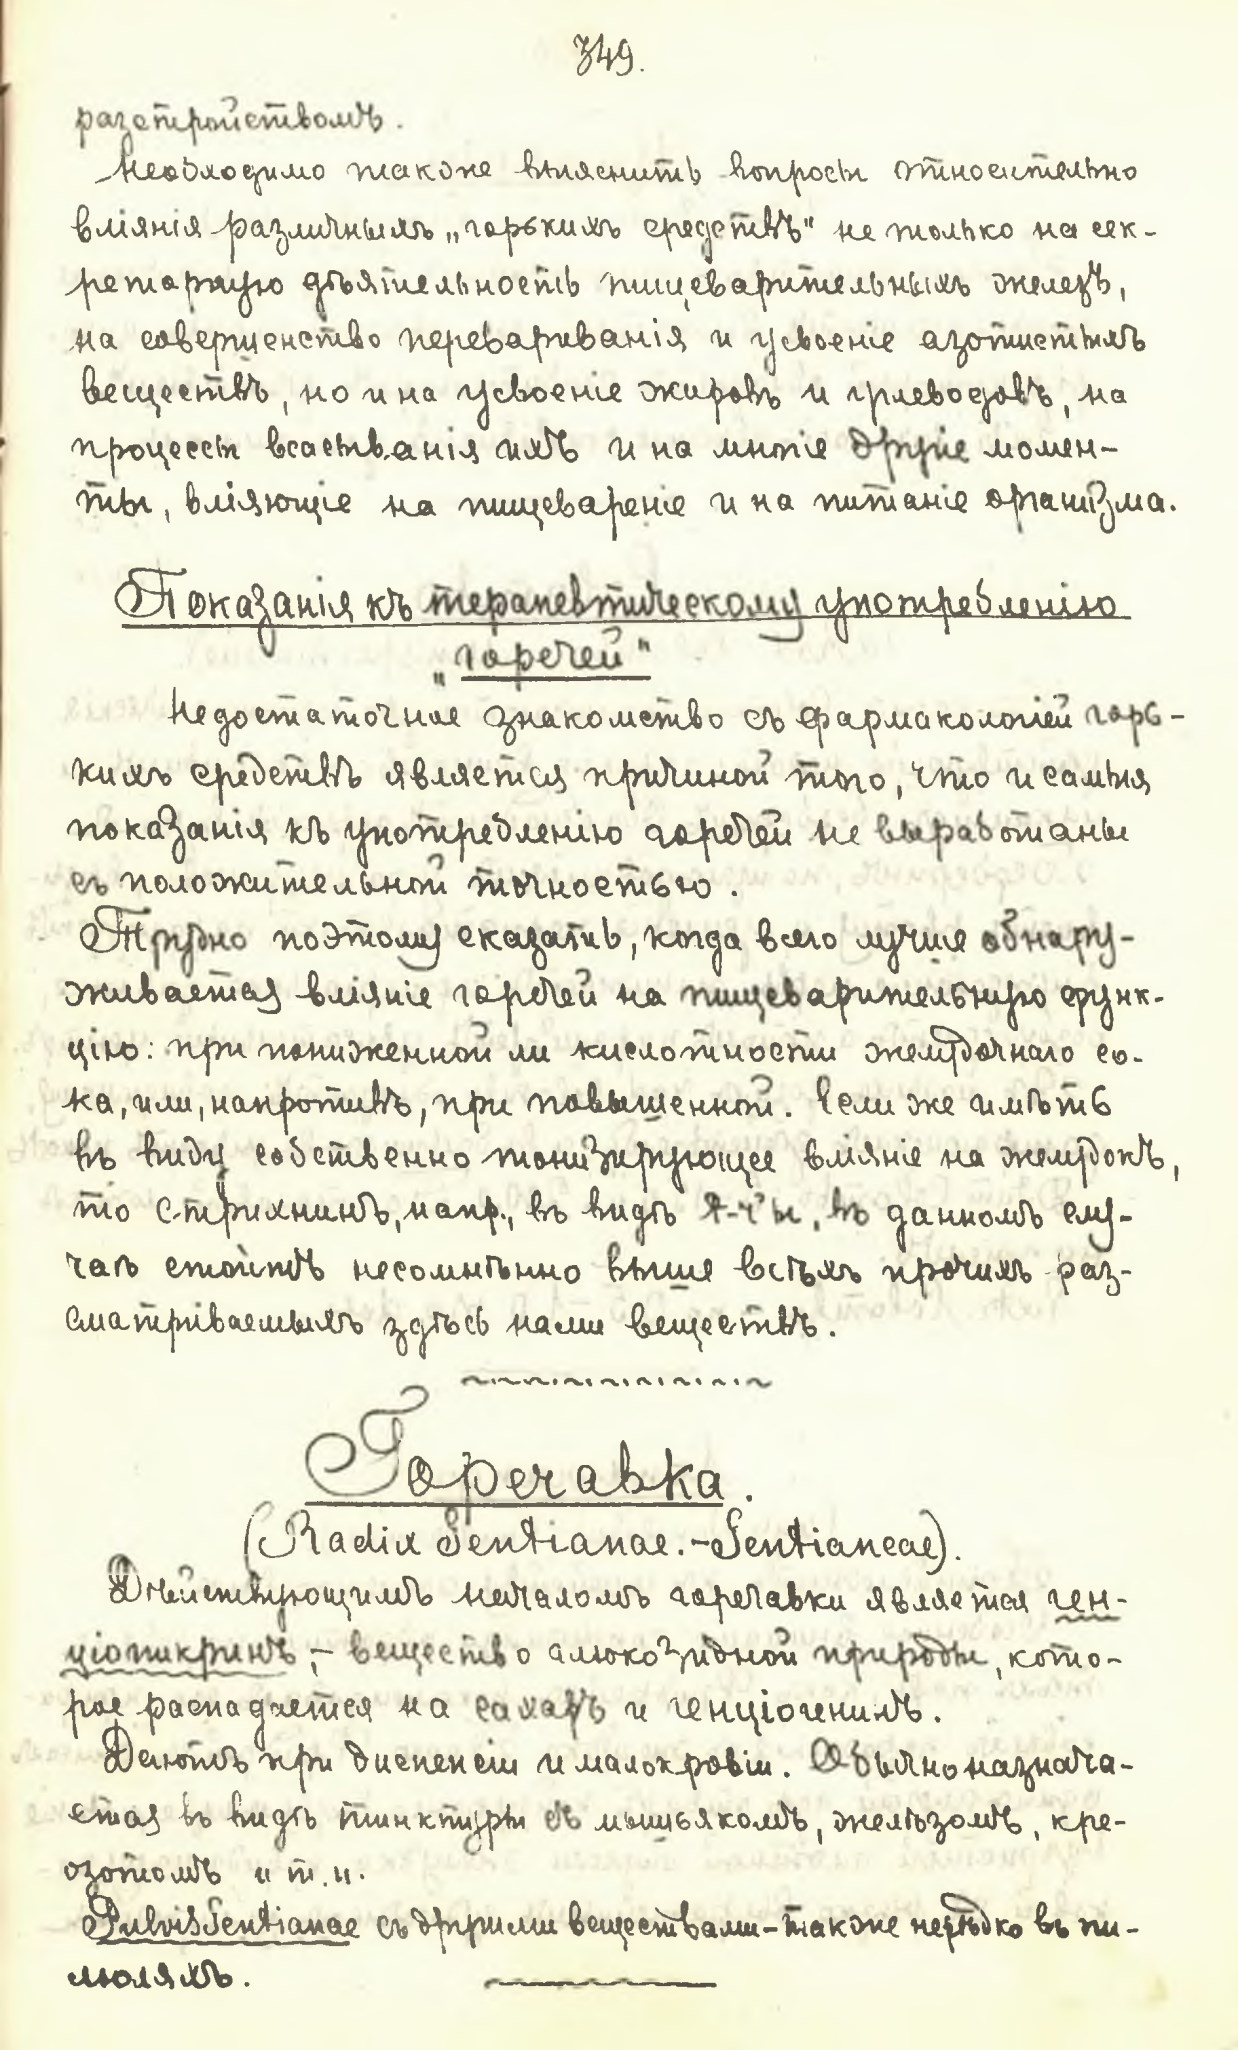 349.
разстройствомъ.
Необходимо также выяснить вопросы относительно
вліянія различныхъ „горькихъ средствъ" не только на сек-
реторную дѣятельность пищеварительныхъ железъ,
на совершенство перевариванія и усвоеніе азотистыхъ
веществъ, но и на усвоеніе жировъ и углеводовъ, на
процессы всасыванія ихъ и на многіе другіе момен-
ты, вліяющіе на пищевареніе и на питаніе организма.
Показанія къ терапевтическому употребленію
„горечей"
Недостаточное знакомство съ фармакологіей горь-
кихъ средствъ является причиной того, что и самыя
показанія къ употребленію горечей не выработаны
съ положительной точностью.
Трудно поэтому сказать, когда всего лучше обнару-
живается вліяніе горечей на пищеварительную функ-
цію: при пониженной ли кислотности желудочнаго со-
ка, или, напротивъ, при повышенной. Если же имѣть
въ виду собственно тонизирующее вліяніе на желудокъ,
то стрихнинъ, напр., въ видѣ t-r'ы, въ данномъ слу-
чаѣ стоитъ несомнѣнно выше всѣхъ прочихъ раз-
сматриваемыхъ здѣсь нами веществъ.
Горечавка.
(Radix Gentianae.-Gentianeae).
Дѣйствующимъ началомъ горечавки является ген-
ціопикринъ, - вещество глюкозидной природы, кото-
рое распадается на сахаръ и генціогенинъ.
Даютъ при диспепсіи и малокровіи. Обычно назнача-
ется въ видѣ тинктуры съ мышьякомъ, желѣзомъ, кре-
озотомъ и т.п.
Pulvis Gentianae съ другими веществами-также нерѣдко въ пи-
люляхъ.